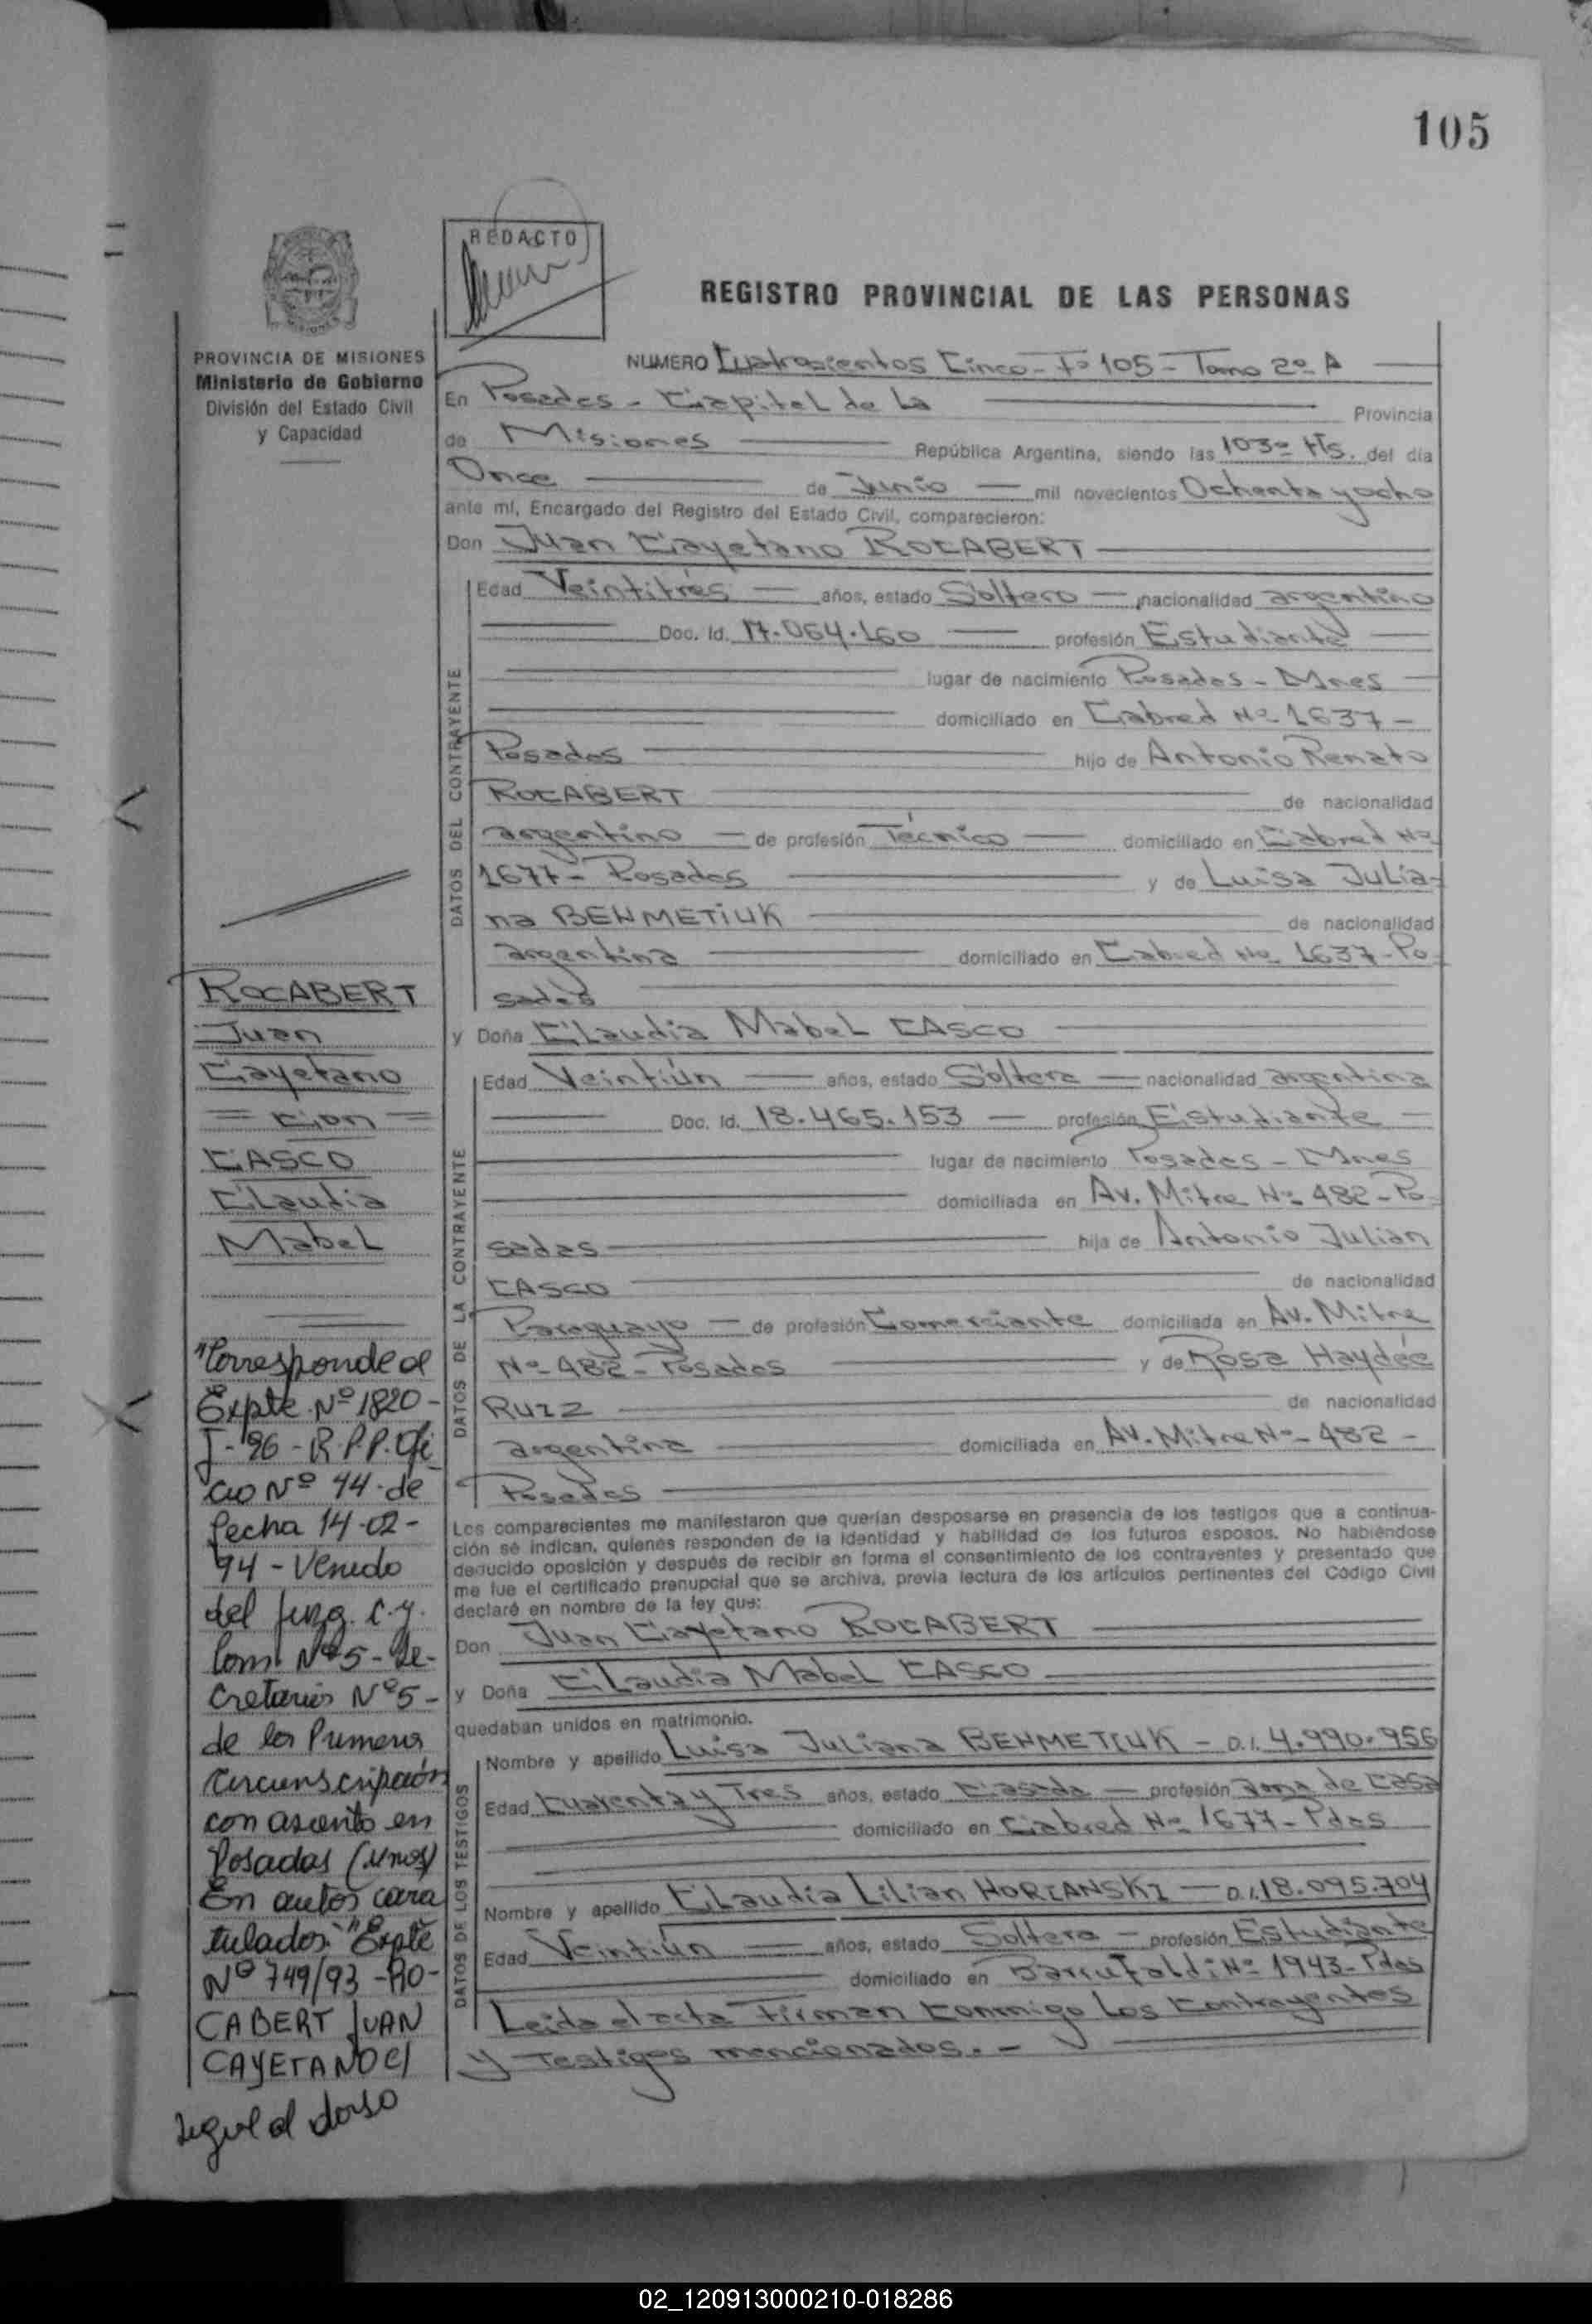 105
REDACTO
REGISTRO PROVINCIAL DE LAS PERSONAS
PROVINCIA DE MISIONES
Ministerio de Gobierno
División del Estado Civil
y Capacidad
NUMERO Cuatrocientos Cinco - Fº 105 - Tomo 2º A
En Posadas - Capital de la Provincia
de Misiones República Argentina, siendo las 1030 Hs. del día
Once de Junio mil novecientos Ochenta y ocho
ante mí, Encargado del Registro del Estado Civil, comparecieron:
Don Juan Cayetano ROCABERT
DATOS DEL CONTRAYENTE
Edad Veintitrés años, estado Soltero nacionalidad argentino
Doc. Id. 17.064.160 profesión Estudiante
lugar de nacimiento Posadas - Mnes
domiciliado en Cabred Nº 1637 -
Posadas hijo de Antonio Renato
ROCABERT de nacionalidad
argentino de profesión Técnico domiciliado en Cabred Nº
1677 - Posadas y de Luisa Julia-
na BEHMETIUK de nacionalidad
argentina domiciliado en Cabred Nº 1637 - Po-
sadas
y Doña Claudia Mabel CASCO
DATOS DE LA CONTRAYENTE
Edad Veintiún años, estado Soltera nacionalidad argentina
Doc. Id. 18.465.153 profesión Estudiante
lugar de nacimiento Posadas - Mnes
domiciliada en Av. Mitre Nº 482 - Po-
sadas hija de Antonio Julián
CASCO de nacionalidad
Paraguayo de profesión Comerciante domiciliada en Av. Mitre
Nº 482 - Posadas y de Rosa Haydée
RUIZ de nacionalidad
argentina domiciliada en Av. Mitre Nº 482 -
Posadas
Los comparecientes me manifestaron que querían desposarse en presencia de los testigos que a continua-
ción se indican, quienes responden de la identidad y habilidad de los futuros esposos. No habiéndose
deducido oposición y después de recibir en forma el consentimiento de los contrayentes y presentado que
me fue el certificado prenupcial que se archiva, previa lectura de los artículos pertinentes del Código Civil
declaré en nombre de la ley que:
Don Juan Cayetano ROCABERT
y Doña Claudia Mabel CASCO
quedaban unidos en matrimonio.
DATOS DE LOS TESTIGOS
Nombre y apellido Luisa Juliana BEHMETIUK - D.I. 4.990.956
Edad Cuarenta y Tres años, estado Casada profesión ama de casa
domiciliado en Cabred Nº 1677 - Pdas
Nombre y apellido Claudia Lilian HORIANSKI - D.I. 18.095.704
Edad Veintiún años, estado Soltera profesión Estudiante
domiciliado en Barrufaldi Nº 1943 - Pdas
Leída el acta Firman conmigo los contrayentes
y Testigos mencionados. -
ROCABERT
Juan
Cayetano
= con =
CASCO
Claudia
Mabel
"Corresponde al
Expte. Nº 1820-
J-96 - R.P.P. Ofi
cio Nº 44 - de
fecha 14-02-
94 - Venido
del Juzg. C. y.
Com. Nº 5 - Se-
cretaria Nº 5 -
de la Primera
Circunscripción
con asiento en
Posadas (Mnes)
En autos cara
tulados: "Expte
Nº 749/93 - RO-
CABERT JUAN
CAYETANO C/
Sigue al dorso
02_120913000210-018286